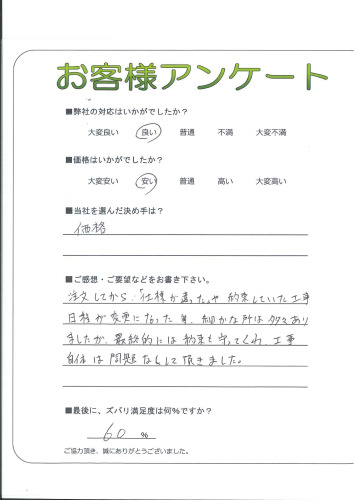 お客様アンケート
■弊社の対応はいかがでしたか?
大変良い 良い 普通 不満 大変不満
■価格はいかがでしたか?
大変安い 安い 普通 高い 大変高い
■当社を選んだ決め手は?
価格
■ご感想・ご要望などをお書き下さい。
注文してから、「仕様が違った。」や 約束していた工事
日程が変更になった等、細かな所は多々あり
ましたが、最終的には約束も守ってくれ、工事
自体は問題なくして頂きました。
■最後に、ズバリ満足度は何%ですか?
60 %
ご協力頂き、誠にありがとうございました。